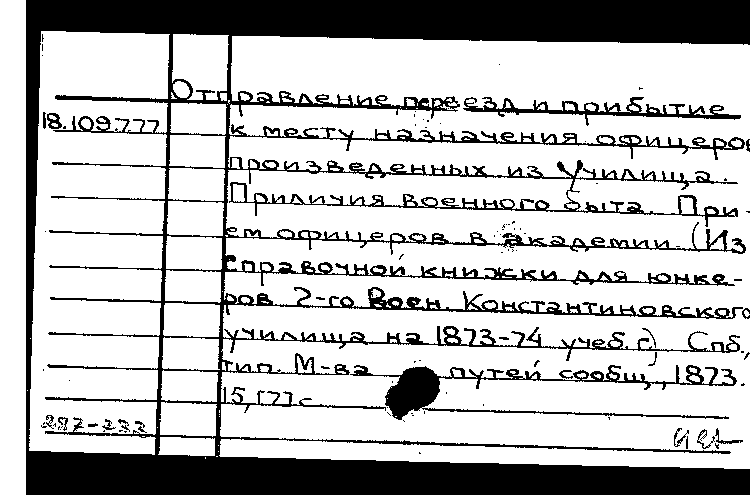 Отправление, переезд и прибытие
18.109.777 к месту назначения офицеров
произведенных из училища.
Приличия военного быта. При-
ем офицеров в академии. (Из
справочной книжки для юнке-
ров 2-го Воен. Константиновского
училища на 1873-74 учеб. г.) Спб.,
тип. М-ва путей сообщ., 1873.
15, [7] с